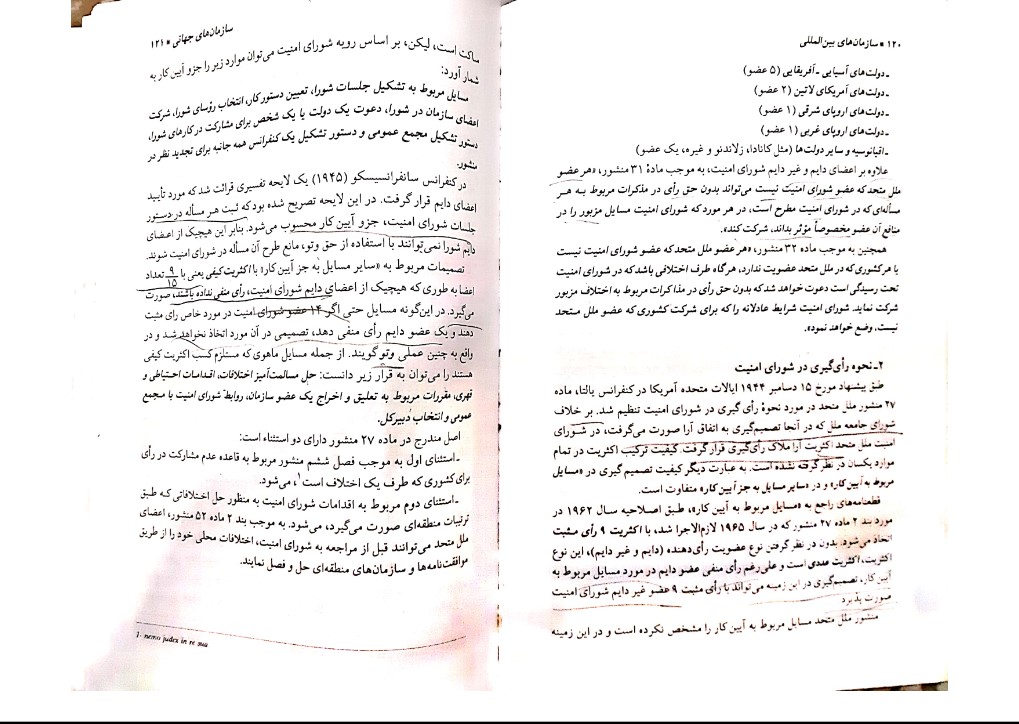 ۱۲۰ * سازمان‌های بین‌المللی
ـ دولت‌های آسیایی ـ آفریقایی (۵ عضو)
ـ دولت‌های آمریکای لاتین (۲ عضو)
ـ دولت‌های اروپای شرقی (۱ عضو)
ـ دولت‌های اروپای غربی (۱ عضو)
ـ اقیانوسیه و سایر دولت‌ها (مثل کانادا، زلاندنو و غیره، یک عضو)
علاوه بر اعضای دایم و غیر دایم شورای امنیت، به موجب مادهٔ ۳۱ منشور، «هر عضو
ملل متحد که عضو شورای امنیت نیست می‌تواند بدون حق رأی در مذاکرات مربوط به هر
مسأله‌ای که در شورای امنیت مطرح است، در هر مورد که شورای امنیت مسایل مزبور را در
منافع آن عضو مخصوصاً مؤثر بداند، شرکت کند».
همچنین به موجب ماده ۳۲ منشور، «هر عضو ملل متحد که عضو شورای امنیت نیست
یا هر کشوری که در ملل متحد عضویت ندارد، هرگاه طرف اختلافی باشد که در شورای امنیت
تحت رسیدگی است دعوت خواهد شد که بدون حق رأی در مذاکرات مربوط به اختلاف مزبور
شرکت نماید. شورای امنیت شرایط عادلانه را که برای شرکت کشوری که عضو ملل متحد
نیست، وضع خواهد نمود».
۲ـ نحوه رأی‌گیری در شورای امنیت
طبق پیشنهاد مورخ ۱۵ دسامبر ۱۹۴۴ ایالات متحده آمریکا در کنفرانس یالتا، ماده
۲۷ منشور ملل متحد در مورد نحوهٔ رأی گیری در شورای امنیت تنظیم شد. بر خلاف
شورای جامعه ملل که در آنجا تصمیم‌گیری به اتفاق آرا صورت می‌گرفت، در شورای
امنیت ملل متحد اکثریت آرا ملاک رأی‌گیری قرار گرفت. کیفیت ترکیب اکثریت در تمام
موارد یکسان در نظر گرفته نشده است. به عبارت دیگر کیفیت تصمیم‌گیری در «مسایل
مربوط به آیین کار» و در «سایر مسایل به جز آیین کار» متفاوت است.
قطعنامه‌های راجع به «مسایل مربوط به آیین کار»، طبق اصلاحیه سال ۱۹۶۲ در
مورد بند ۲ ماده ۲۷ منشور که در سال ۱۹۶۵ لازم‌الاجرا شد، با اکثریت ۹ رأی مثبت
اتخاذ می‌شود. بدون در نظر گرفتن نوع عضویت رأی‌دهنده (دایم و غیر دایم)، این نوع
اکثریت، اکثریت عددی است و علی‌رغم رأی منفی عضو دایم در مورد مسایل مربوط به
آیین کار، تصمیم‌گیری در این زمینه می‌تواند با رأی مثبت ۹ عضو غیر دایم شورای امنیت
صورت پذیرد
منشور ملل متحد مسایل مربوط به آیین کار را مشخص نکرده است و در این زمینه
سازمان‌های جهانی * ۱۲۱
ساکت است، لیکن، بر اساس رویه شورای امنیت می‌توان موارد زیر را جزو آیین کار به
شمار آورد:
مسایل مربوط به تشکیل جلسات شورا، تعیین دستور کار، انتخاب رؤسای شورا، شرکت
اعضای سازمان در شورا، دعوت یک دولت یا یک شخص برای مشارکت در کارهای شورا،
دستور تشکیل مجمع عمومی و دستور تشکیل یک کنفرانس همه جانبه برای تجدید نظر در
منشور.
در کنفرانس سانفرانسیسکو (۱۹۴۵) یک لایحه تفسیری قرائت شد که مورد تأیید
اعضای دایم قرار گرفت. در این لایحه تصریح شده بود که ثبت هر مسأله در دستور
جلسات شورای امنیت، جزو آیین کار محسوب می‌شود. بنابر این هیچیک از اعضای
دایم شورا نمی‌توانند با استفاده از حق وتو، مانع طرح آن مسأله در شورای امنیت شوند.
تصمیمات مربوط به «سایر مسایل به جز آیین کار» با اکثریت کیفی یعنی با ۹/۱۵ تعداد
اعضا به طوری که هیچیک از اعضای دایم شورای امنیت، رأی منفی نداده باشند، صورت
می‌گیرد. در این‌گونه مسایل حتی اگر ۱۴ عضو شورای امنیت در مورد خاص رأی مثبت
دهند و یک عضو دایم رأی منفی دهد، تصمیمی در آن مورد اتخاذ نخواهد شد و در
واقع به چنین عملی وتو گویند. از جمله مسایل ماهوی که مستلزم کسب اکثریت کیفی
هستند را می‌توان به قرار زیر دانست: حل مسالمت‌آمیز اختلافات، اقدامات احتیاطی و
قهری، مقررات مربوط به تعلیق و اخراج یک عضو سازمان، روابط شورای امنیت با مجمع
عمومی و انتخاب دبیرکل.
اصل مندرج در ماده ۲۷ منشور دارای دو استثناء است:
ـ استثنای اول به موجب فصل ششم منشور مربوط به قاعده عدم مشارکت در رأی
برای کشوری که طرف یک اختلاف است۱، می‌شود.
ـ استثنای دوم مربوط به اقدامات شورای امنیت به منظور حل اختلافاتی که طبق
ترتیبات منطقه‌ای صورت می‌گیرد، می‌شود. به موجب بند ۲ ماده ۵۲ منشور، اعضای
ملل متحد می‌توانند قبل از مراجعه به شورای امنیت، اختلافات محلی خود را از طریق
موافقت‌نامه‌ها و سازمان‌های منطقه‌ای حل و فصل نمایند.
1- nemo judex in re sua